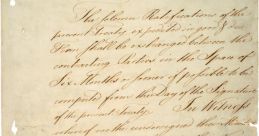 The solemn Ratifications of the
present Treaty expedited in good &
Form shall be exchanged between the
contracting Parties in the Space of
Six Months or sooner if possible to be
computed from the Day of the Signature
of the present Treaty. In Witness
whereof we the undersigned their